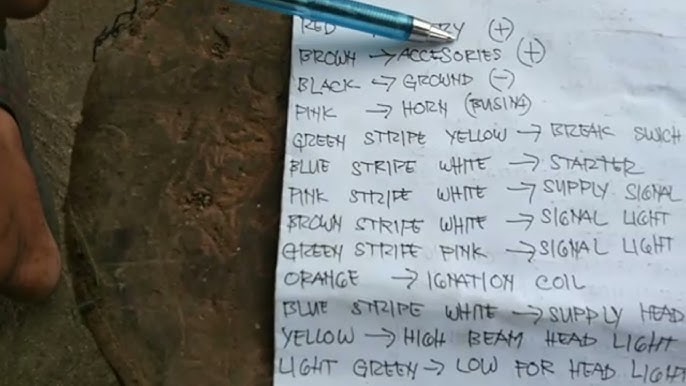 RED (+)
BROWN → ACCESORIES (+)
BLACK → GROUND (-)
PINK → HORN (BUSINA)
GREEN STRIPE YELLOW → BREAK SWICH
BLUE STRIPE WHITE → STARTER
PINK STRIPE WHITE → SUPPLY SIGNAL
BROWN STRIPE WHITE → SIGNAL LIGHT
GREEN STRIPE PINK → SIGNAL LIGHT
ORANGE → IGNATION COIL
BLUE STRIPE WHITE → SUPPLY HEAD
YELLOW → HIGH BEAM HEAD LIGHT
LIGHT GREEN → LOW FOR HEAD LIGHT